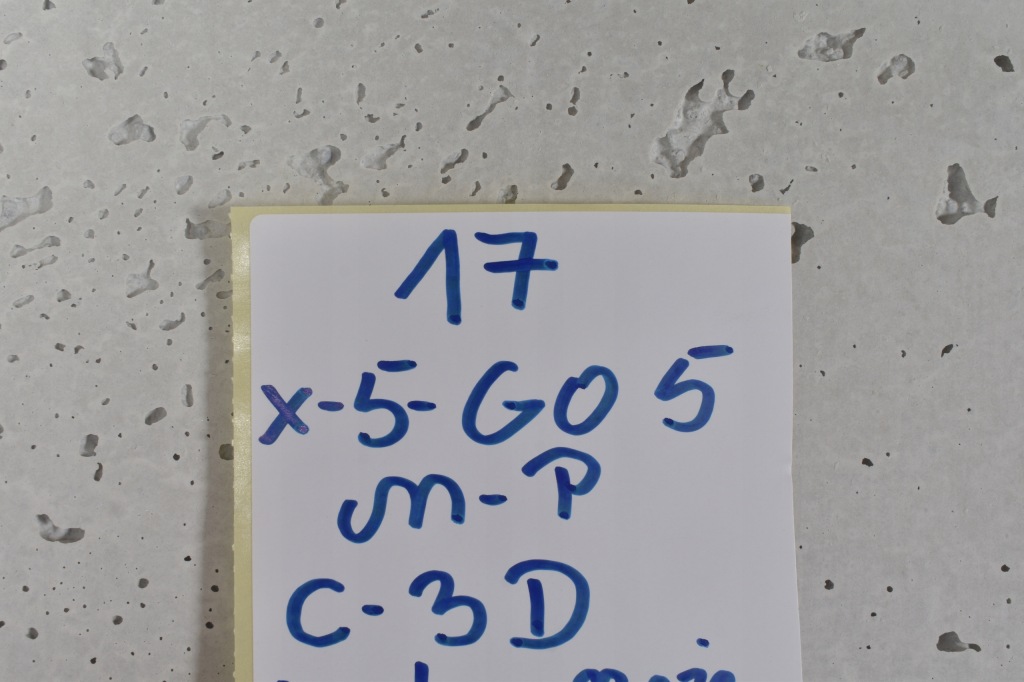 17
x-5-GO 5
m-P
C-3D